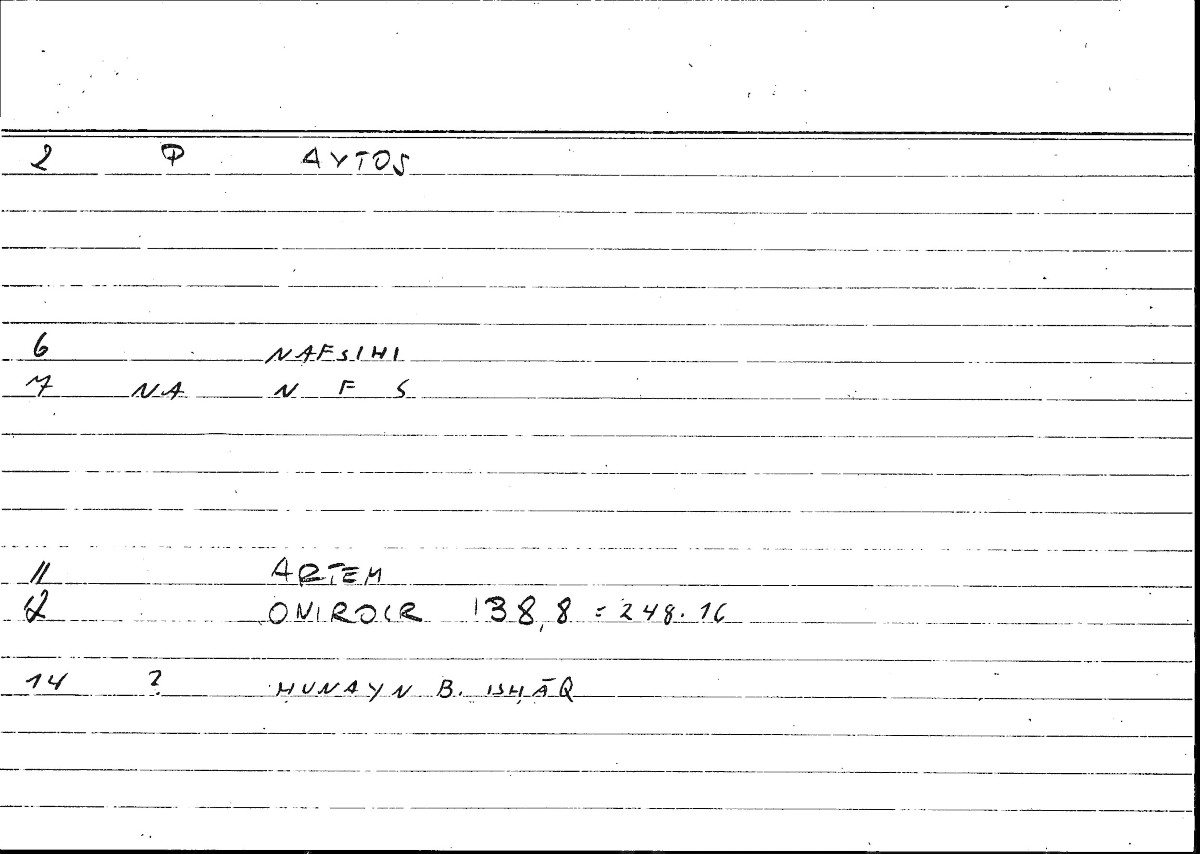 2 P AYTOS
6 NAFSIHI
7 NA N F S
11 ARTEM
12 ONIROCR 138,8 = 248.16
14 ? ḤUNAYN B. ISḤĀQ